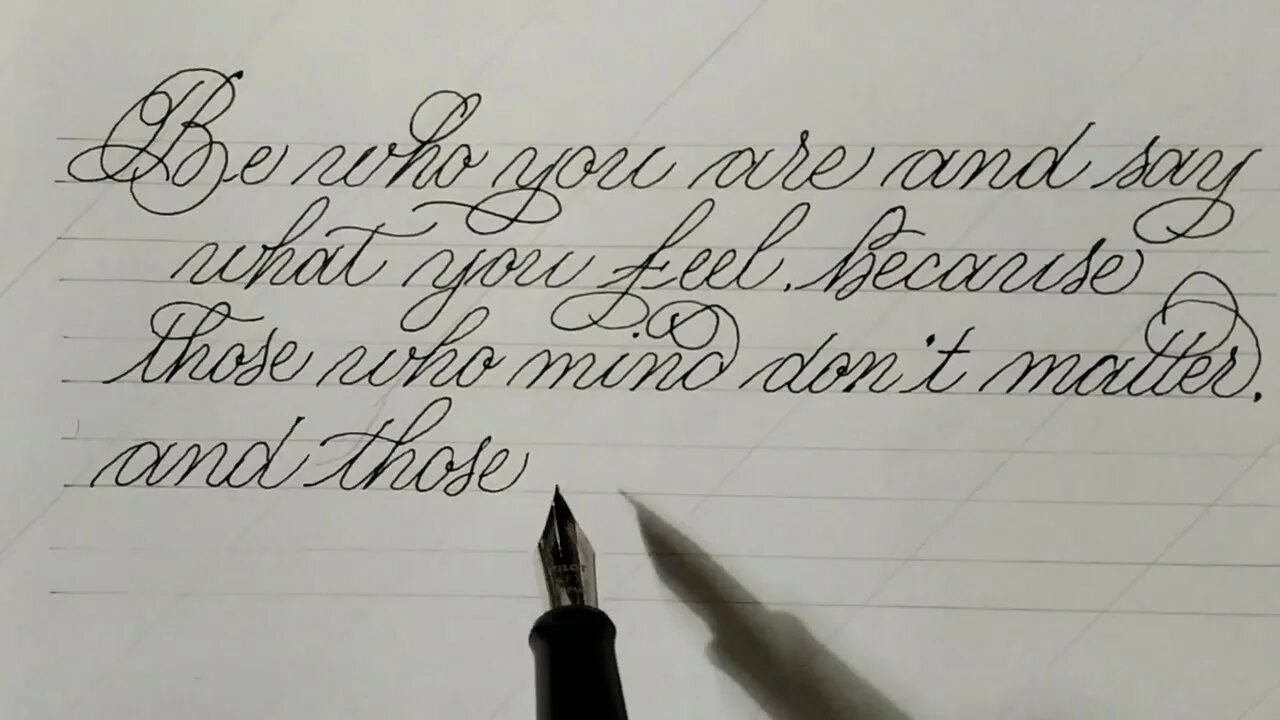 Be who you are and say
what you feel. Because
those who mind don't matter.
and those
PILOT